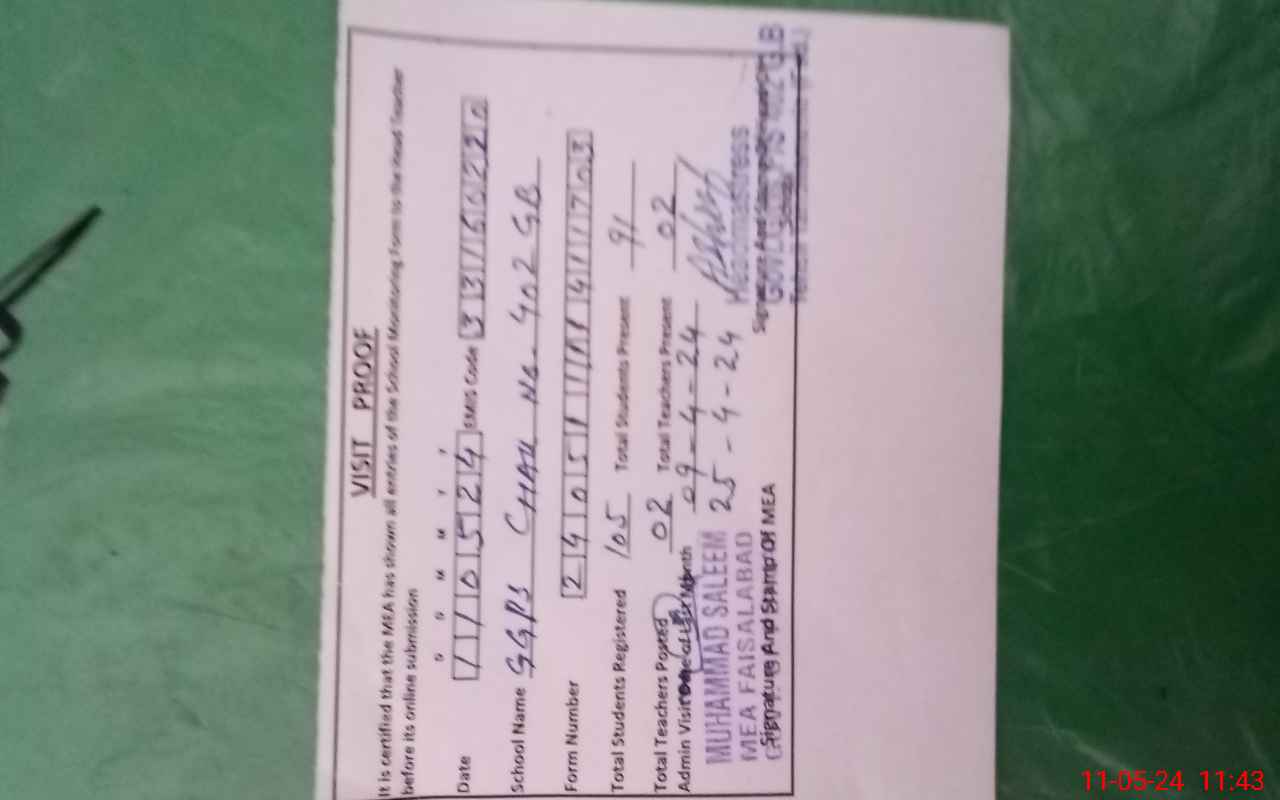 VISIT PROOF
It is certified that the MEA has shown all entries of the School Monitoring Form to the Head Teacher
before its online submission
D D M M Y Y
Date 110524 EMIS Code 33160220
School Name GGPS CHAK No. 402 GB
Form Number
Total Students Registered 105 Total Students Present 91
Total Teachers Posted 02 Total Teachers Present 02
Admin Visit Month 09-4-24
25-4-24
MUHAMMAD SALEEM
MEA FAISALABAD
Signature And Stamp Of MEA
Headmistress
11-05-24 11:43